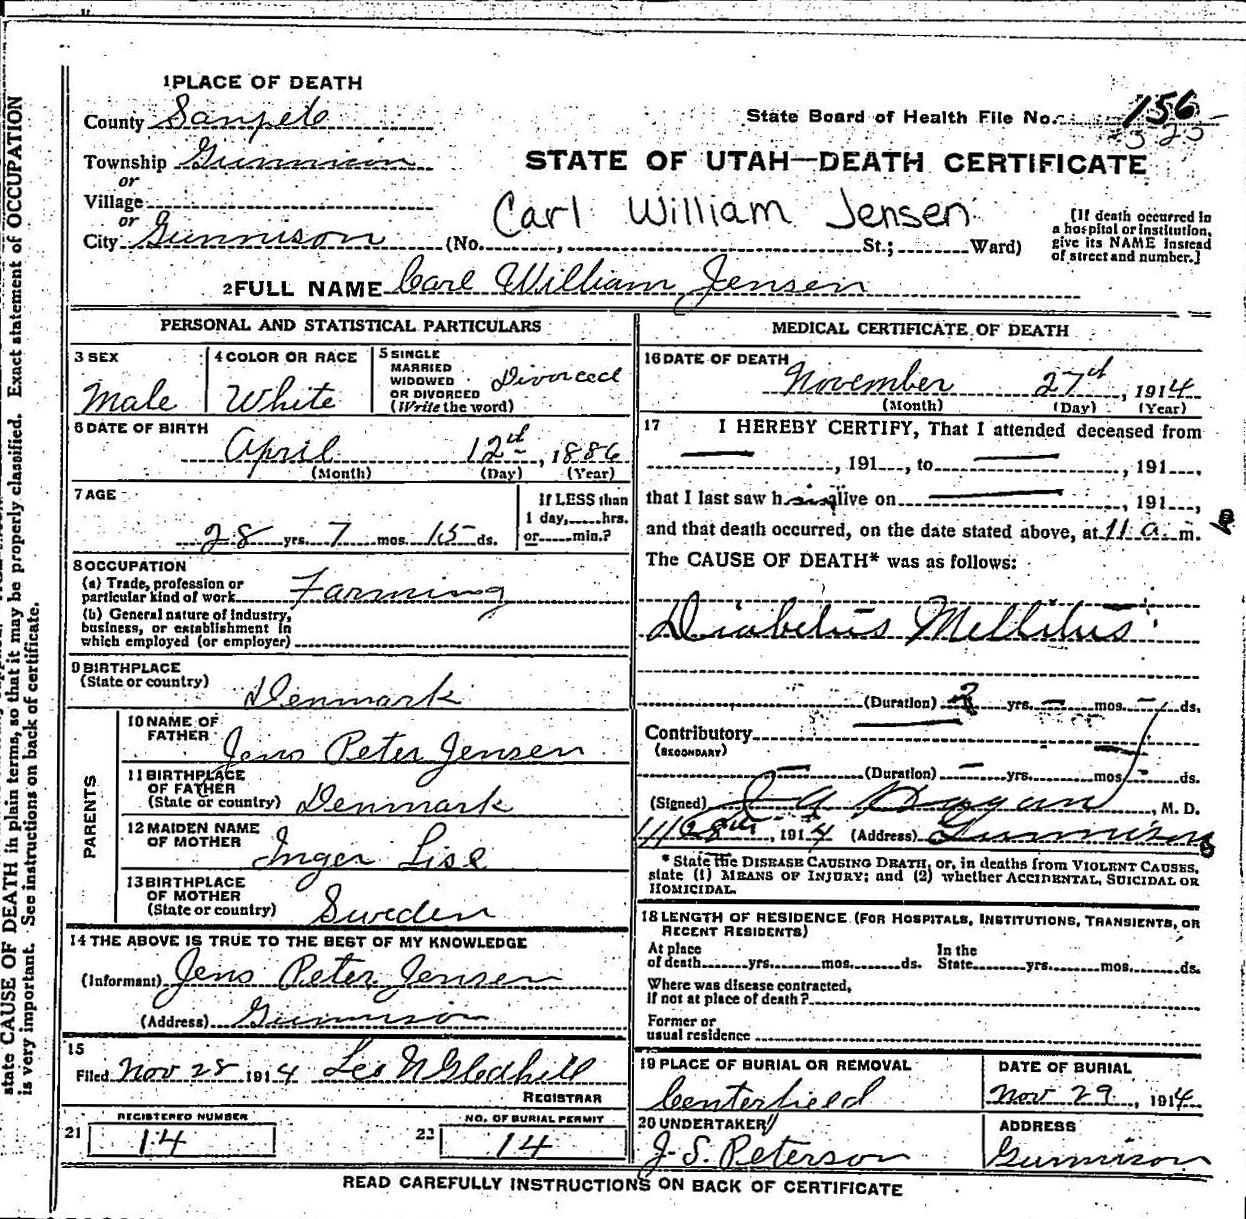 1 PLACE OF DEATH
County Sanpete
State Board of Health File No. 156
325
Township Gunnison
STATE OF UTAH—DEATH CERTIFICATE
or
Village
or
City Gunnison (No. , St.; Ward)
Carl William Jensen
[If death occurred in
a hospital or institution,
give its NAME instead
of street and number.]
2 FULL NAME Carl William Jensen
PERSONAL AND STATISTICAL PARTICULARS
3 SEX
Male
4 COLOR OR RACE
White
5 SINGLE
MARRIED
WIDOWED
OR DIVORCED
(Write the word)
Divorced
6 DATE OF BIRTH
April 12th, 1886
(Month) (Day) (Year)
7 AGE
28 yrs. 7 mos. 15 ds.
If LESS than
1 day, hrs.
or min.?
8 OCCUPATION
(a) Trade, profession or
particular kind of work Farming
(b) General nature of industry,
business, or establishment in
which employed (or employer)
9 BIRTHPLACE
(State or country)
Denmark
PARENTS
10 NAME OF
FATHER
Jens Peter Jensen
11 BIRTHPLACE
OF FATHER
(State or country) Denmark
12 MAIDEN NAME
OF MOTHER
Inger Lise
13 BIRTHPLACE
OF MOTHER
(State or country) Sweden
14 THE ABOVE IS TRUE TO THE BEST OF MY KNOWLEDGE
(Informant) Jens Peter Jensen
(Address) Gunnison
15
Filed Nov 28 1914 Leo N Gledhill
REGISTRAR
REGISTERED NUMBER
21 14
NO. OF BURIAL PERMIT
22 14
MEDICAL CERTIFICATE OF DEATH
16 DATE OF DEATH
November 27th, 1914
(Month) (Day) (Year)
17 I HEREBY CERTIFY, That I attended deceased from
— , 191 , to — , 191 ,
that I last saw h alive on — , 191 ,
and that death occurred, on the date stated above, at 11 a. m.
The CAUSE OF DEATH* was as follows:
Diabetus Mellitus
(Duration) yrs. — mos. — ds.
Contributory
(SECONDARY)
(Duration) — yrs. mos. ds.
(Signed) Hagan, M. D.
11/28th, 1914 (Address) Gunnison
* State the DISEASE CAUSING DEATH, or, in deaths from VIOLENT CAUSES,
state (1) MEANS OF INJURY; and (2) whether ACCIDENTAL, SUICIDAL OR
HOMICIDAL.
18 LENGTH OF RESIDENCE (FOR HOSPITALS, INSTITUTIONS, TRANSIENTS, OR
RECENT RESIDENTS)
At place
of death yrs. mos. ds.
In the
State yrs. mos. ds.
Where was disease contracted,
if not at place of death?
Former or
usual residence
19 PLACE OF BURIAL OR REMOVAL
Centerfield
DATE OF BURIAL
Nov 29, 1914
20 UNDERTAKER
J. S. Peterson
ADDRESS
Gunnison
READ CAREFULLY INSTRUCTIONS ON BACK OF CERTIFICATE
state CAUSE OF DEATH in plain terms, so that it may be properly classified. Exact statement of OCCUPATION
is very important. See instructions on back of certificate.